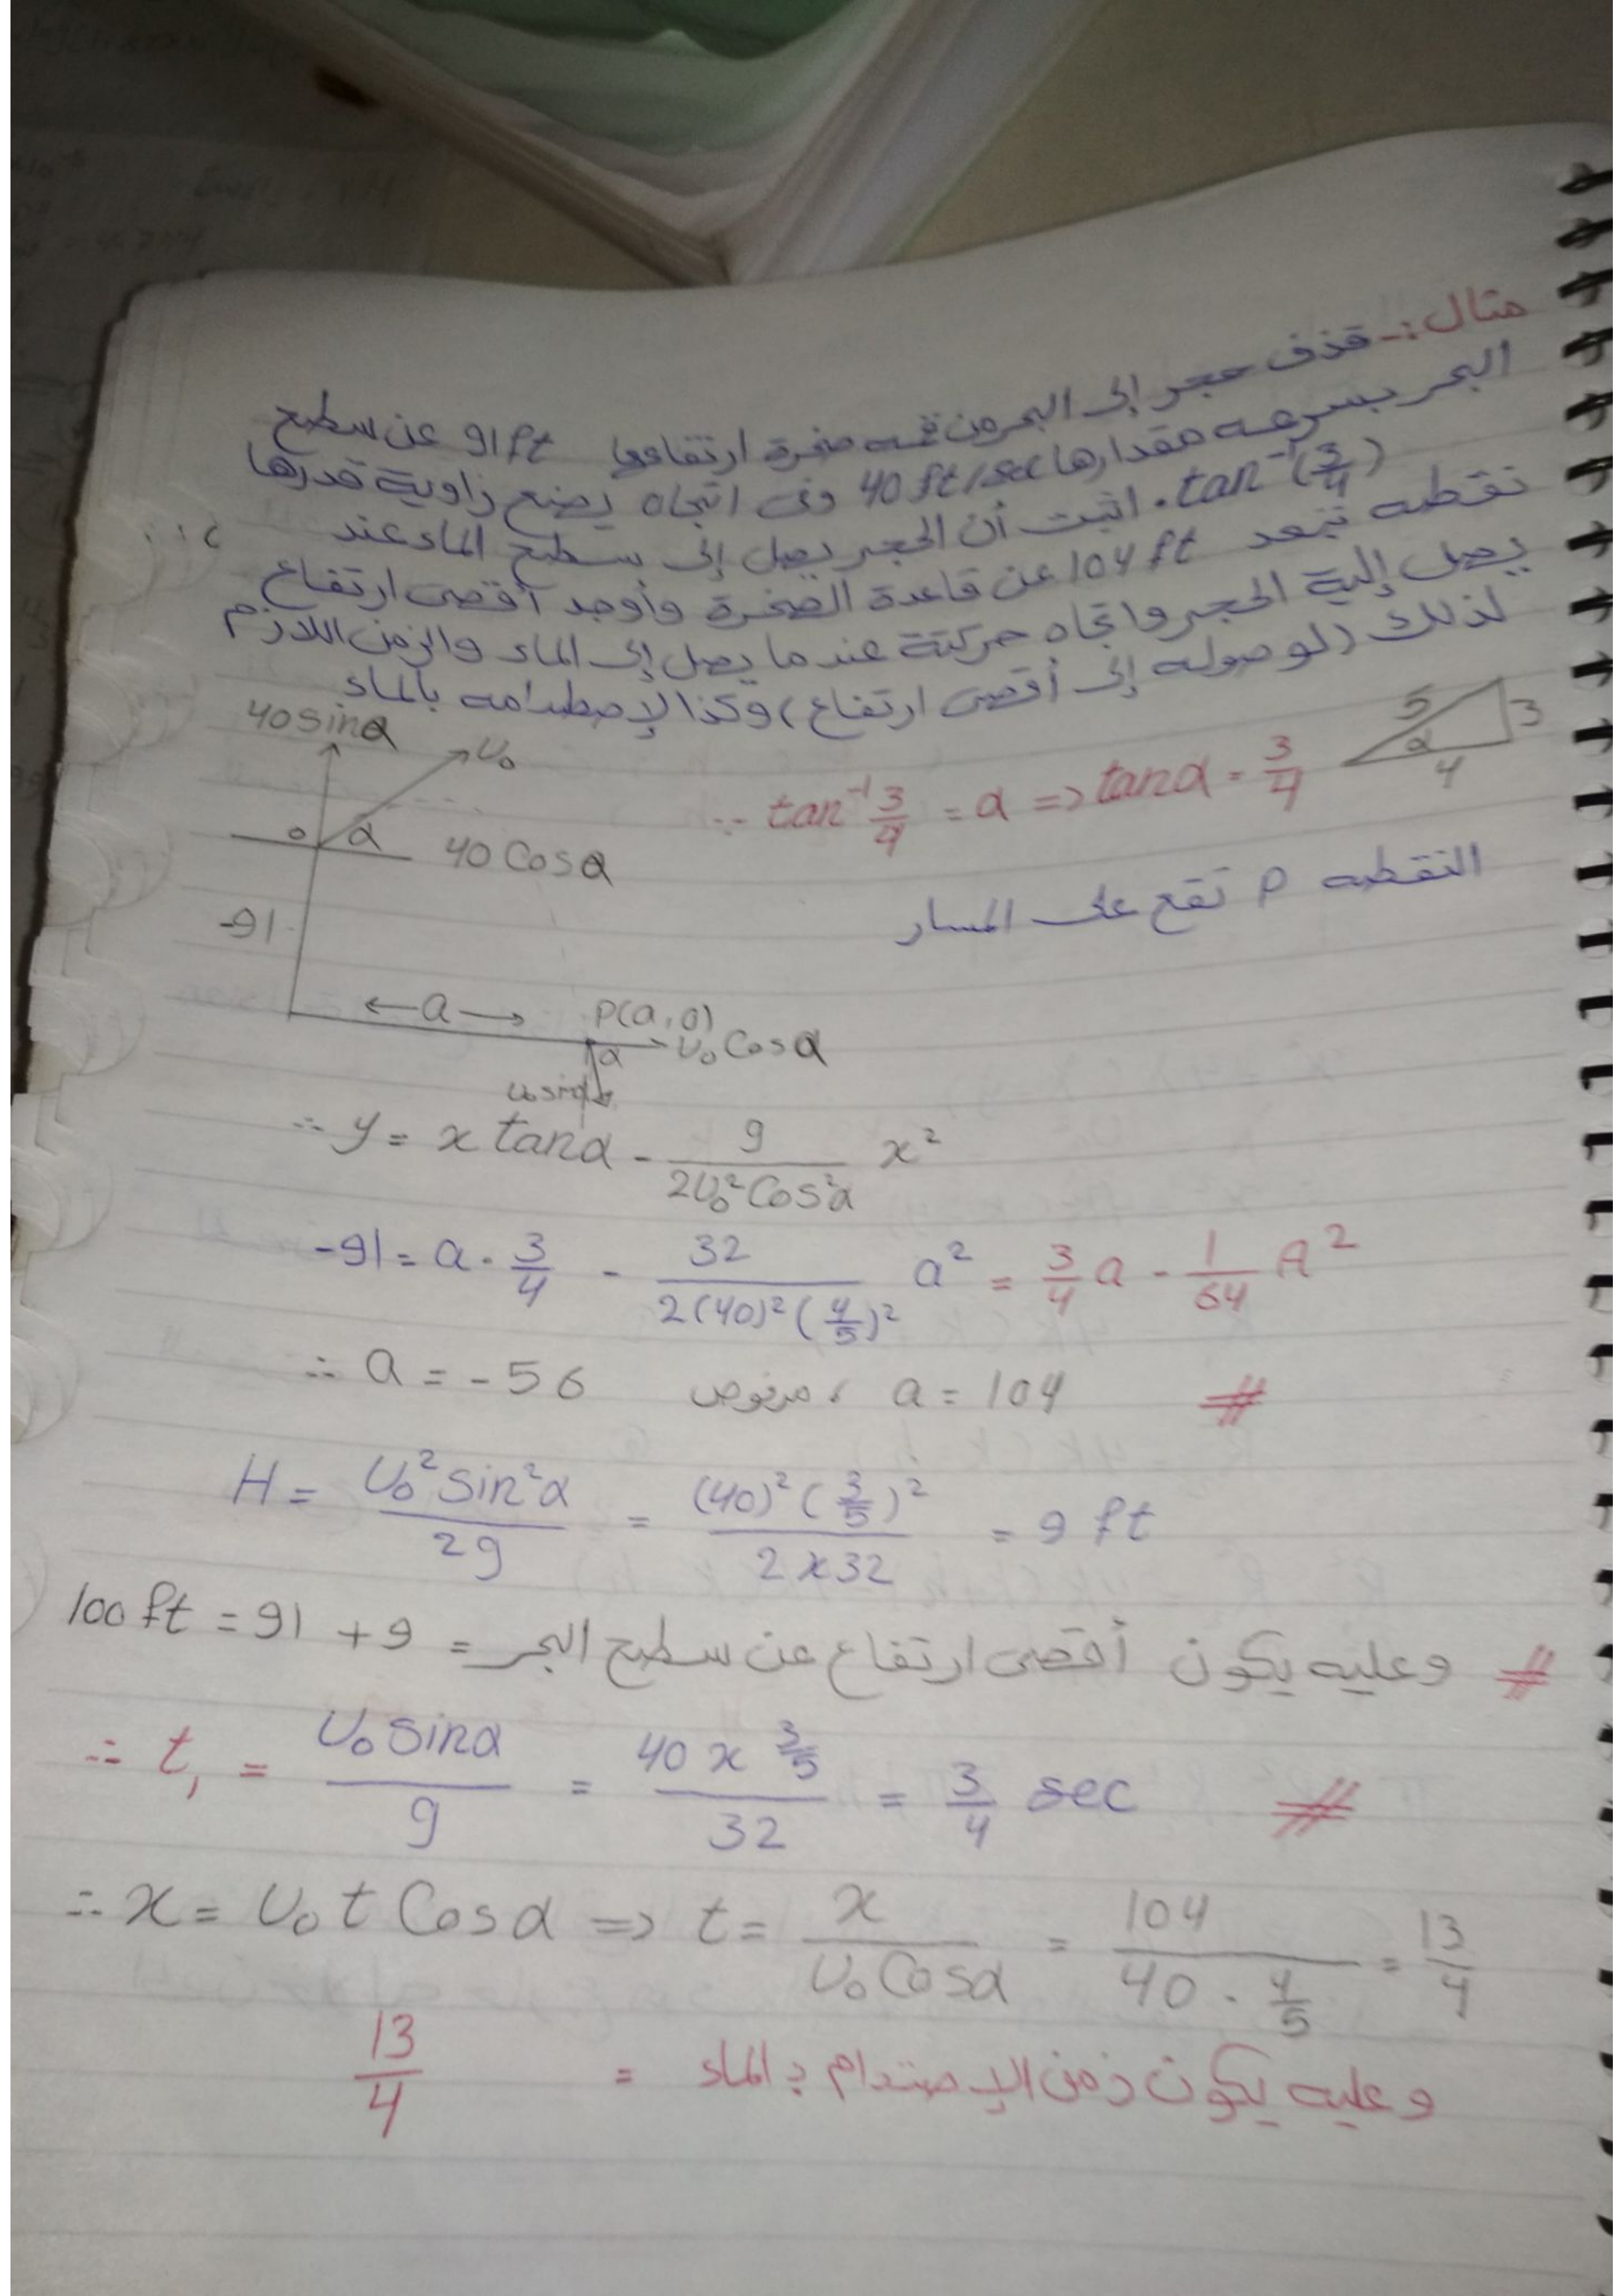 مثال :- قذف حجر إلى البحر من قمه صخرة ارتفاعها 91 ft عن سطح
البحر بسرعه مقدارها 40 ft/sec وفى اتجاه يصنع زاوية قدرها
tan⁻¹(3/4) . اثبت أن الحجر يصل إلى سطح الماء عند
نقطه تبعد 104 ft عن قاعدة الصخرة وأوجد أقصى ارتفاع
يصل إلية الحجر واتجاه حركتة عندما يصل إلى الماء والزمن اللازم
لذلك (لوصوله إلى أقصى ارتفاع) وكذا لإصطدامه بالماء
40 sinα
U₀
5
3
α
4
∵ tan⁻¹ 3/4 = α => tanα = 3/4
0 α 40 Cosα
النقطه P تقع على المسار
-91
←a→ P(a, 0)
α U₀ Cosα
U₀ sinα
∴ y = x tanα - g/(2U₀² Cos²α) x²
-91 = a . 3/4 - 32/(2(40)² (4/5)²) a² = 3/4 a - 1/64 a²
∴ a = -56 مرفوض ، a = 104 #
H = U₀² sin²α/2g = (40)² (3/5)²/(2 x 32) = 9 ft
# وعليه يكون أقصى ارتفاع عن سطح البحر = 9 + 91 = 100 ft
∴ t₁ = U₀ sinα/g = (40 x 3/5)/32 = 3/4 sec #
∴ x = U₀ t Cosα => t = x/(U₀ Cosα) = 104/(40 . 4/5) = 13/4
وعليه يكون زمن الإصتدام بالماء = 13/4